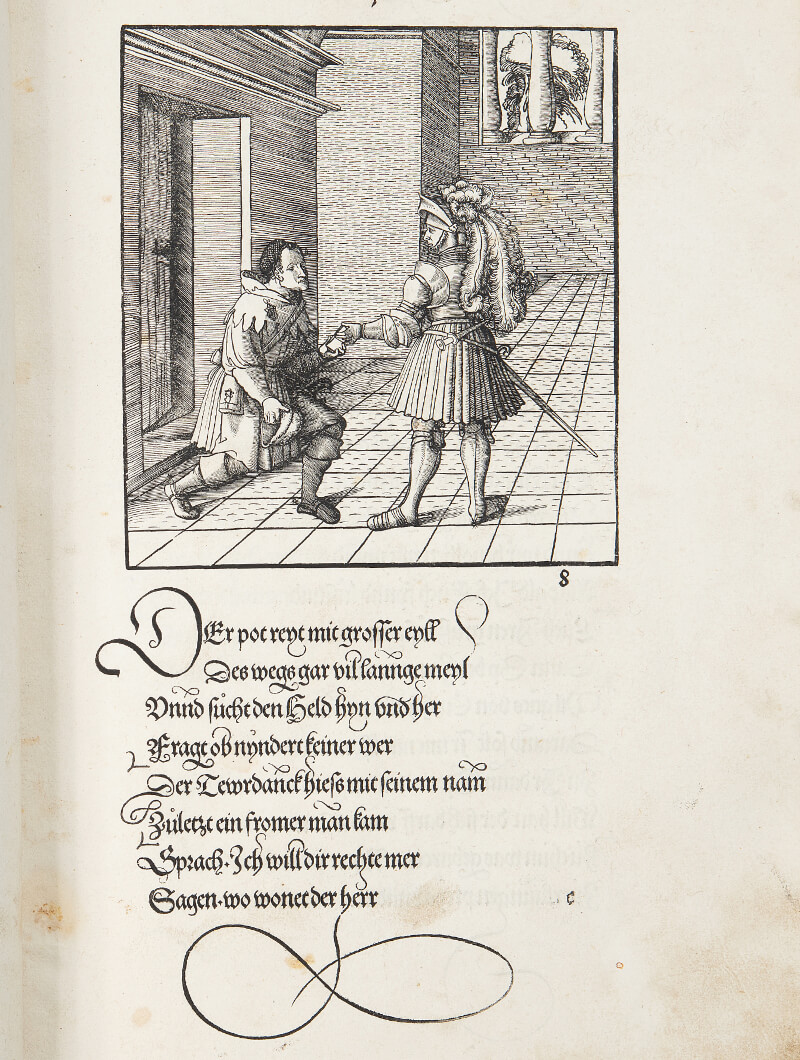 8
DEr pot reyt mit grosser eyll
Des wegs gar vil lannge meyl
Vnnd sůcht den Held hyn vnd her
Fragt ob nyndert keiner wer
Der Tewrdanck hiess mit seinem nam
Zůletzt ein fromer man kam
Sprach. Ich will dir rechte mer
Sagen. wo wonet der herr
c